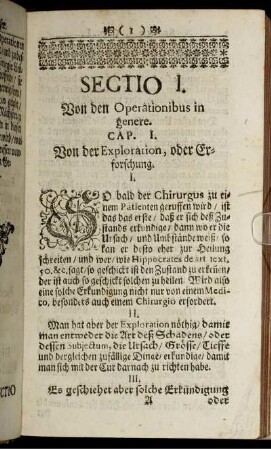 (1)
SECTIO I.
Von den Operationibus in
genere.
CAP. I.
Von der Exploration, oder Er-
forschung.
I.
SO bald der Chirurgus zu ei-
nem Patienten geruffen wird / ist
das das erste / daß er sich deß Zu-
stands erkundige / dann wo er die
Ursach / und Umbstände weiß / so
kan er desto eher zur Heilung
schreiten / und wer / wie Hippocrates de art. text.
50. &c. sagt / so geschickt ist den Zustand zu erkeñen /
der ist auch so geschickt solchen zu heilen. Wird also
eine solche Erkundigung nicht nur von einem Medi-
co, besonders auch einem Chirurgio erfordert.
II.
Man hat aber der Exploration nöthig / damit
man entweder die Art deß Schadens / oder
dessen Subjectum, die Ursach / Grösse / Tieffe
und dergleichen zufällige Dinge / erkundige / damit
man sich mit der Cur darnach zu richten habe.
III.
Es geschiehet aber solche Erkündigung
A oder